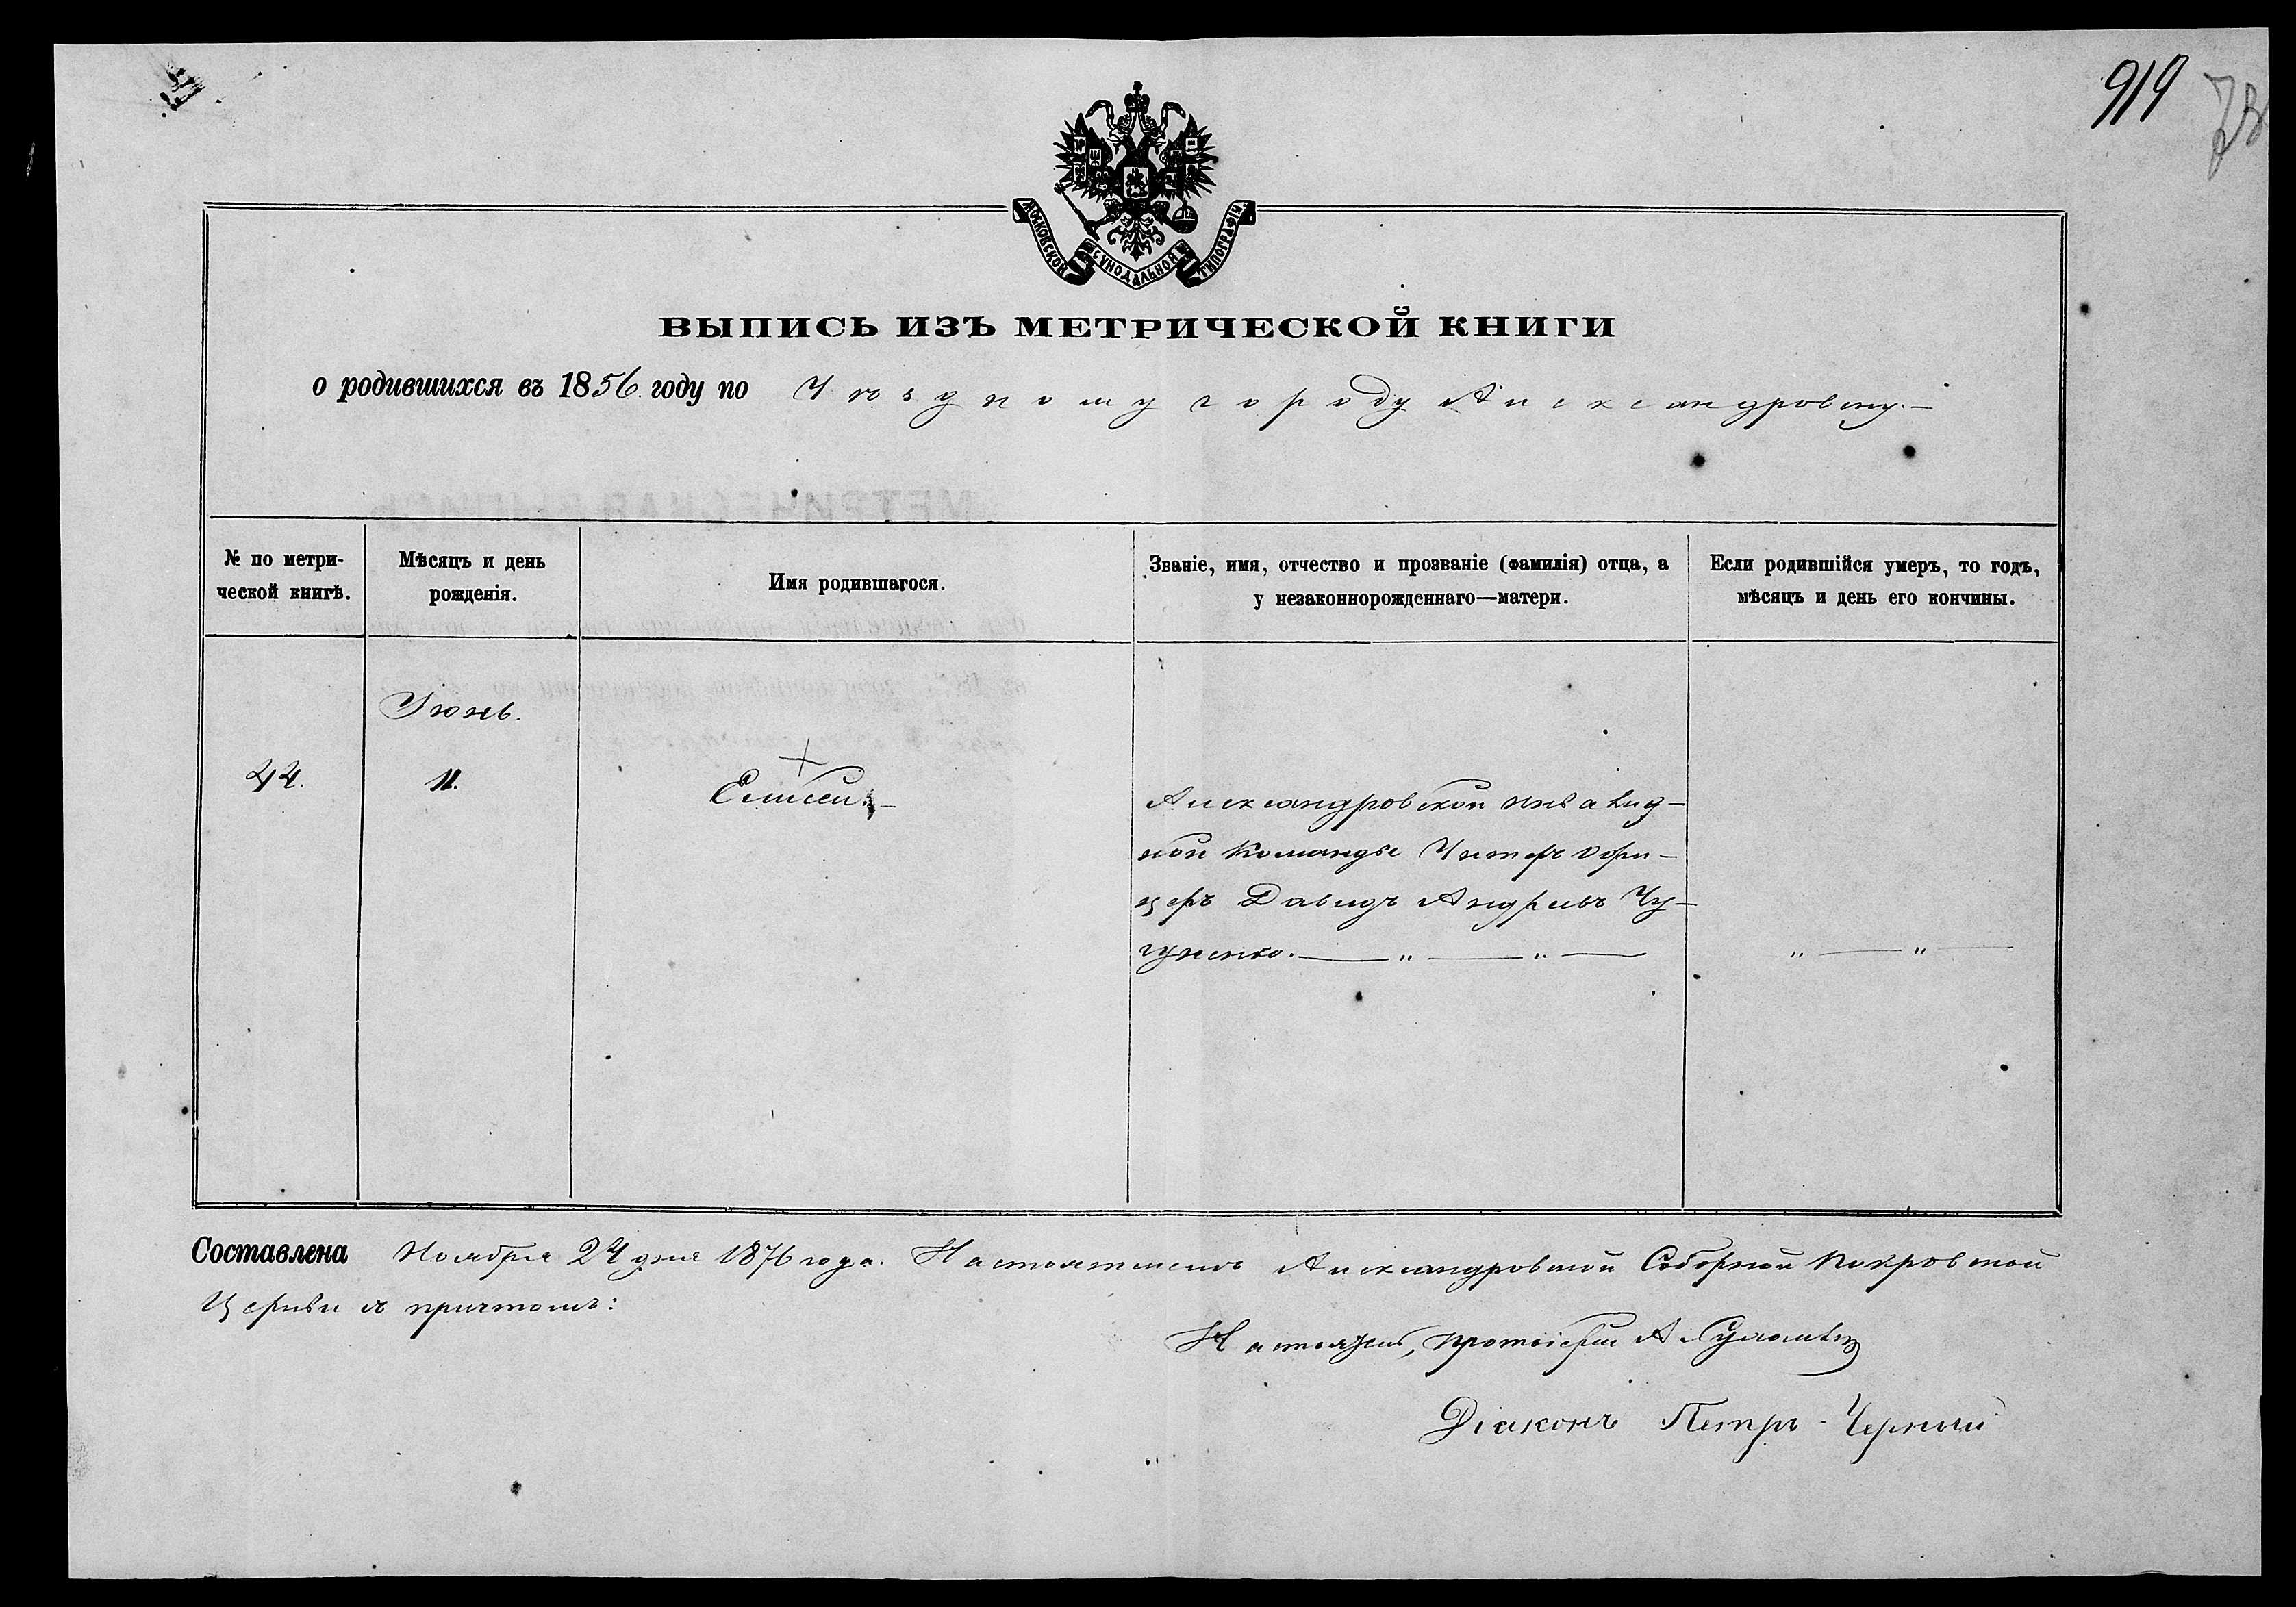 919
78
МОСКОВСКОЙ СѴНОДАЛЬНОЙ ТИПОГРАФІИ.
ВЫПИСЬ ИЗЪ МЕТРИЧЕСКОЙ КНИГИ
о родившихся въ 1856 году по Уѣздному городу Александровску.—
№ по метри-
ческой книгѣ.
Мѣсяцъ и день
рожденія.
Имя родившагося.
Званіе, имя, отчество и прозваніе (фамилія) отца, а
у незаконнорожденнаго—матери.
Если родившійся умеръ, то годъ,
мѣсяцъ и день его кончины.
Іюнь.
44.
11.
Елисей.—
Александровской инвалид—
ной команды Унтеръ офи—
церъ Давидъ Андреевъ Чу—
гуненко. — „ — „ —
„ — „ —
Составлена Ноября 24 дня 1876 года. Настоятелемъ Александровской Соборной Покровской
Церкви съ причтомъ:
Настоятель, протоіерей А.
Діаконъ Петръ Черный